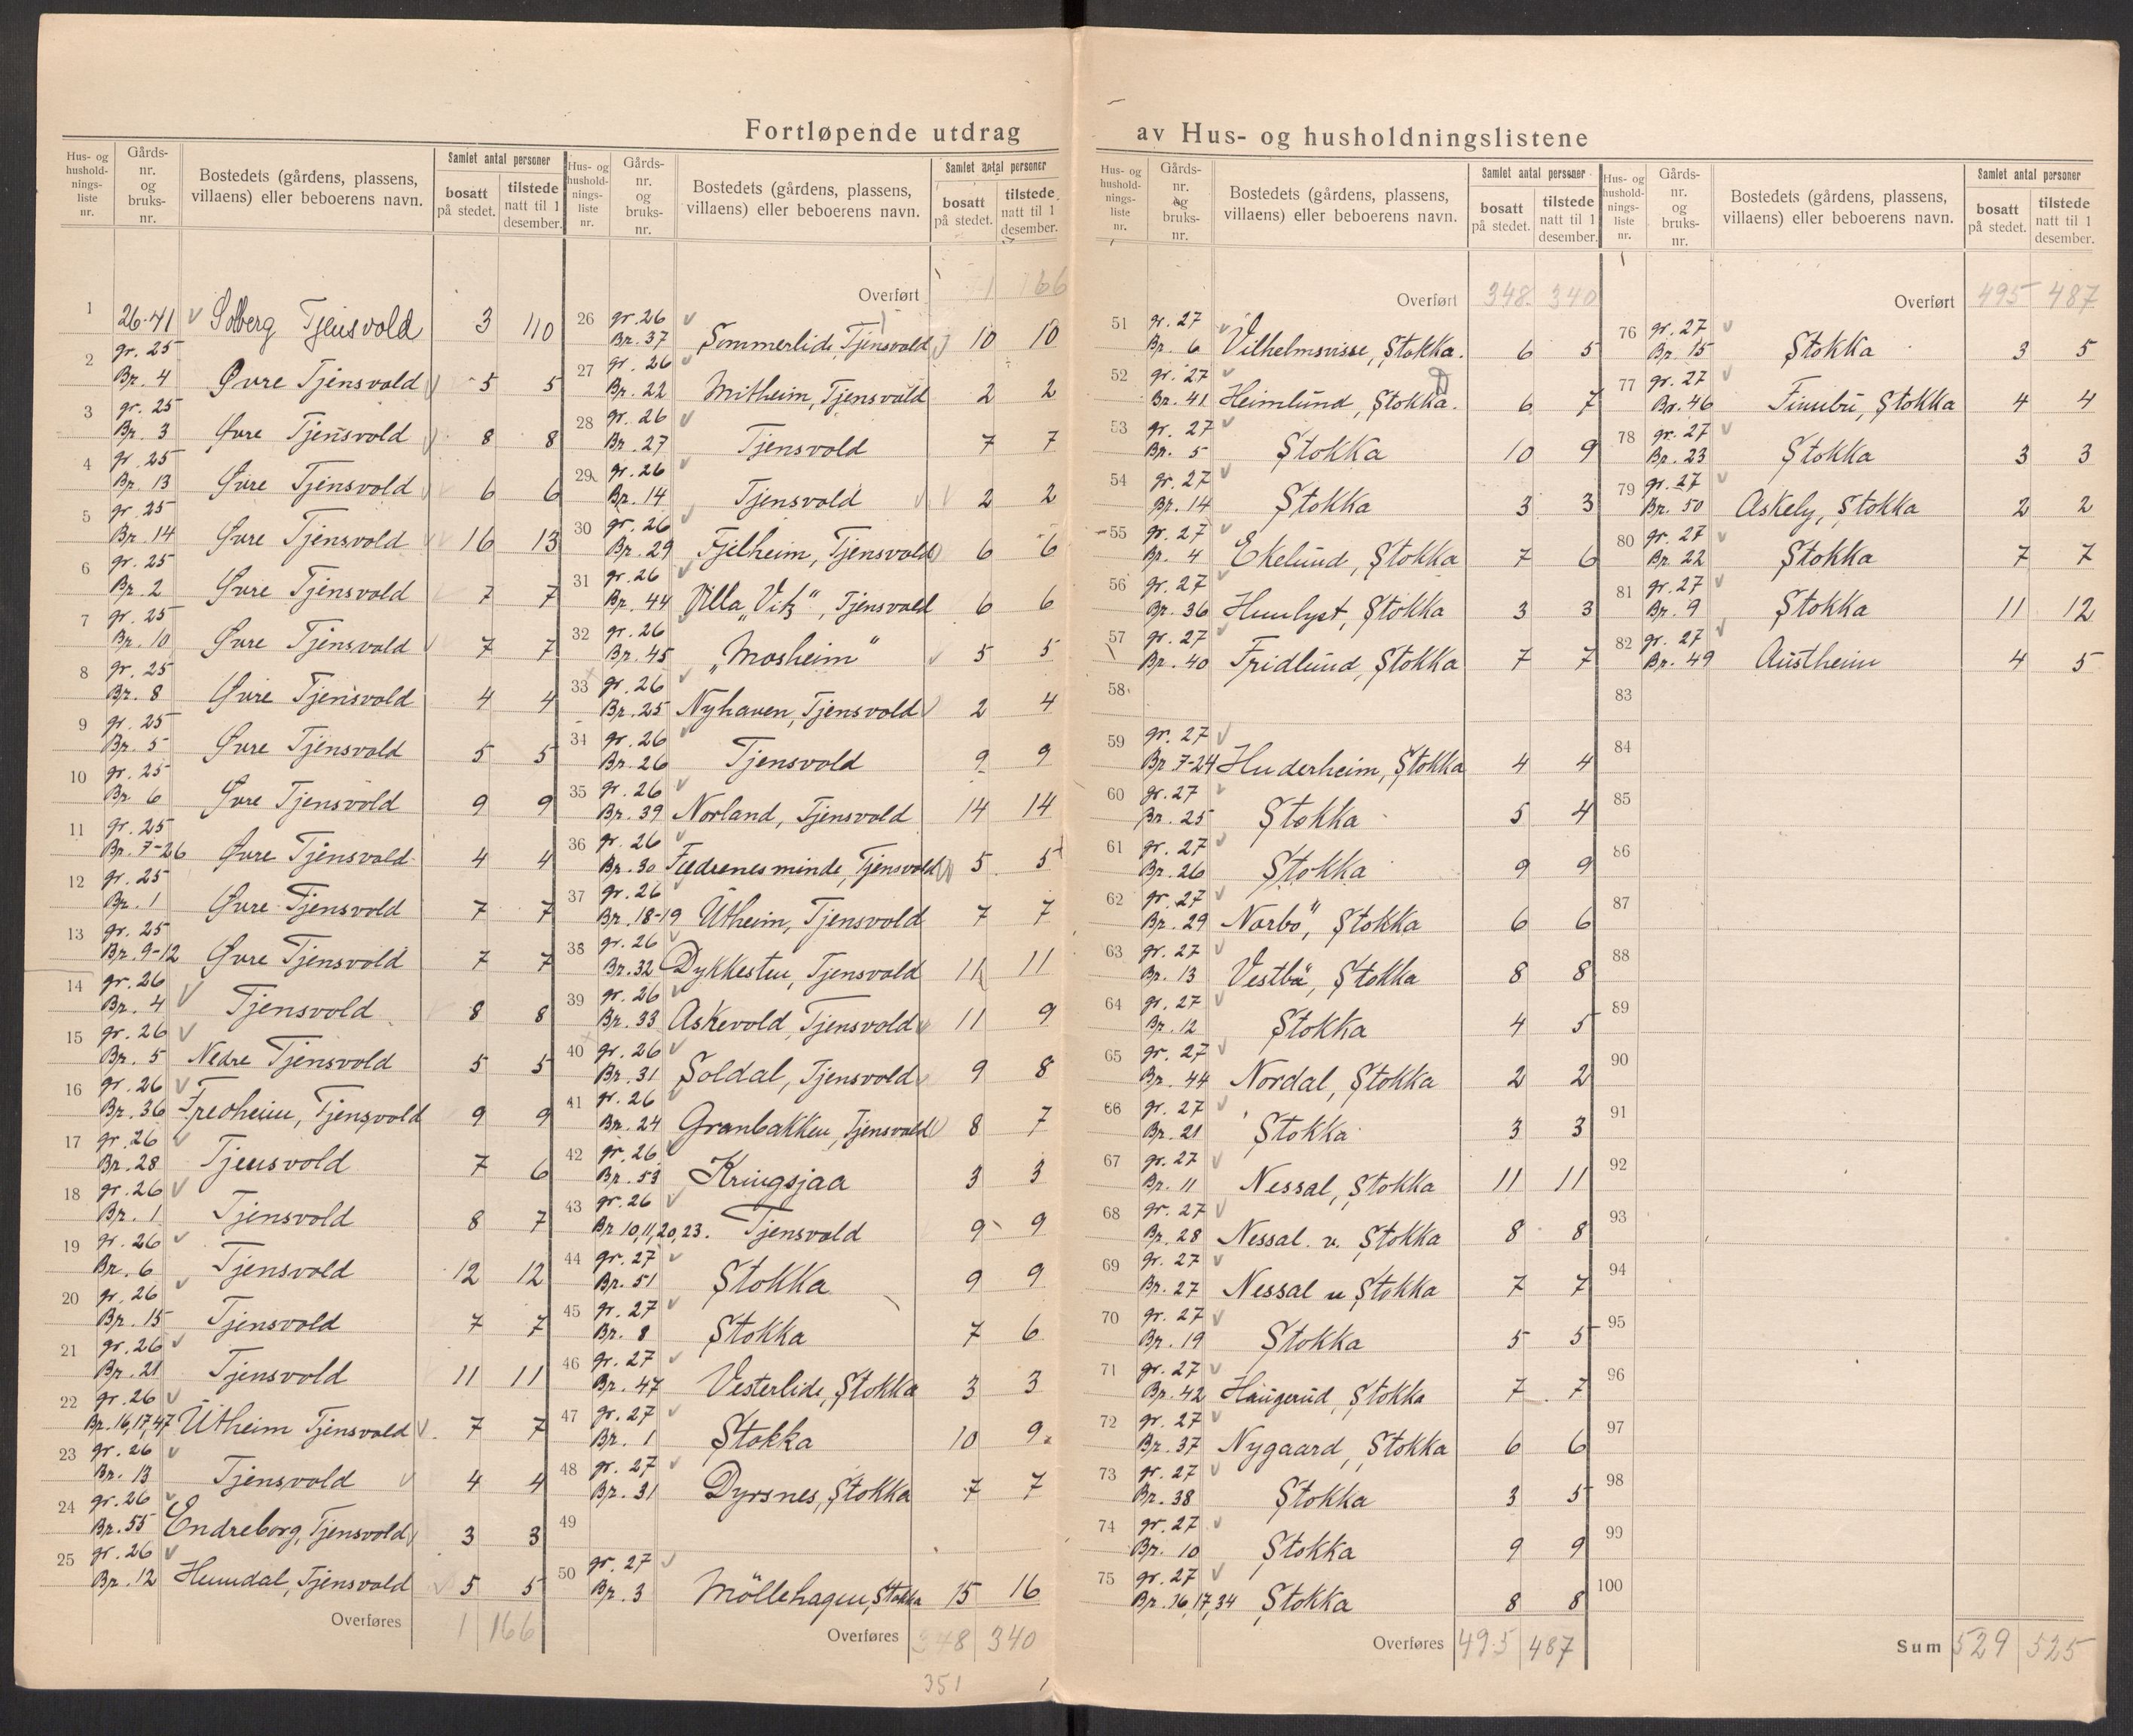 Fortløpende utdrag av Hus- og husholdningslistene
Hus- og husholdnings-liste nr. | Gårds-nr. og bruks-nr. | Bostedets (gårdens, plassens, villaens) eller beboerens navn. | Samlet antal personer | bosatt på stedet. | tilstede natt til 1 desember.
1 26-41 Solberg Tjensvold 3 10
2 gr. 25 Br. 4 Øvre Tjensvold 5 5
3 gr. 25 Br. 3 Øvre Tjensvold 8 8
4 gr. 25 Br. 13 Øvre Tjensvold 6 6
5 gr. 25 Br. 14 Øvre Tjensvold 16 13
6 gr. 25 Br. 2 Øvre Tjensvold 7 7
7 gr. 25 Br. 10 Øvre Tjensvold 7 7
8 gr. 25 Br. 8 Øvre Tjensvold 4 4
9 gr. 25 Br. 5 Øvre Tjensvold 5 5
10 gr. 25 Br. 6 Øvre Tjensvold 9 9
11 gr. 25 Br. 7-26 Øvre Tjensvold 4 4
12 gr. 25 Br. 1 Øvre Tjensvold 7 7
13 gr. 25 Br. 9-12 Øvre Tjensvold 7 7
14 gr. 26 Br. 4 Tjensvold 8 8
15 gr. 26 Br. 5 Nedre Tjensvold 5 5
16 gr. 26 Br. 36 Fredheim, Tjensvold 9 9
17 gr. 26 Br. 28 Tjensvold 7 6
18 gr. 26 Br. 1 Tjensvold 8 7
19 gr. 26 Br. 6 Tjensvold 12 12
20 gr. 26 Br. 15 Tjensvold 7 7
21 gr. 26 Br. 21 Tjensvold 11 11
22 gr. 26 Br. 16,17,47 Utheim Tjensvold 7 7
23 gr. 26 Br. 13 Tjensvold 4 4
24 gr. 26 Br. 55 Endreborg, Tjensvold 3 3
25 gr. 26 Br. 12 Humdal, Tjensvold 5 5
Overføres 1 166
Hus- og husholdnings-liste nr. | Gårds-nr. og bruks-nr. | Bostedets (gårdens, plassens, villaens) eller beboerens navn. | Samlet antal personer | bosatt på stedet. | tilstede natt til 1 desember.
Overført 1 166
26 gr. 26 Br. 37 Sommerlide, Tjensvold 10 10
27 gr. 26 Br. 22 Mitheim, Tjensvold 2 2
28 gr. 26 Br. 27 Tjensvold 7 7
29 gr. 26 Br. 14 Tjensvold 2 2
30 gr. 26 Br. 29 Fjelheim, Tjensvold 6 6
31 gr. 26 Br. 44 Villa "Vik", Tjensvold 6 6
32 gr. 26 Br. 45 "Mosheim" 5 5
33 gr. 26 Br. 25 Nyhaven, Tjensvold 2 4
34 gr. 26 Br. 26 Tjensvold 9 9
35 gr. 26 Br. 39 Norland, Tjensvold 14 14
36 gr. 26 Br. 30 Fædrenesminde, Tjensvold 5 5
37 gr. 26 Br. 18-19 Utheim, Tjensvold 7 7
38 gr. 26 Br. 32 Dykkesten, Tjensvold 11 11
39 gr. 26 Br. 33 Askevold, Tjensvold 11 9
40 gr. 26 Br. 31 Soldal, Tjensvold 9 8
41 gr. 26 Br. 24 Granbakken, Tjensvold 8 7
42 gr. 26 Br. 53 Kringsjaa 3 3
43 gr. 26 Br. 10,11,20,23. Tjensvold 9 9
44 gr. 27 Br. 51 Stokka 9 9
45 gr. 27 Br. 8 Stokka 7 6
46 gr. 27 Br. 47 Vesterlide, Stokka 3 3
47 gr. 27 Br. 1 Stokka 10 9
48 gr. 27 Br. 31 Dyrsnes, Stokka 7 7
49
50 gr. 27 Br. 3 Möllehagen, Stokka 15 16
Overføres 348 340
351
Hus- og husholdnings-liste nr. | Gårds-nr. og bruks-nr. | Bostedets (gårdens, plassens, villaens) eller beboerens navn. | Samlet antal personer | bosatt på stedet. | tilstede natt til 1 desember.
Overført 348 340
51 gr. 27 Br. 6 Vilhelmsvisse, Stokka. 6 5
52 gr. 27 Br. 41 Heimlund, Stokka. 6 7
53 gr. 27 Br. 5 Stokka 10 9
54 gr. 27 Br. 14 Stokka 3 3
55 gr. 27 Br. 4 Ekelund, Stokka 7 6
56 gr. 27 Br. 36 Humlyst, Stokka 3 3
57 gr. 27 Br. 40 Fridlund, Stokka 7 7
58
59 gr. 27 Br. 7-24 Huderheim, Stokka 4 4
60 gr. 27 Br. 25 Stokka 5 4
61 gr. 27 Br. 26 Stokka 9 9
62 gr. 27 Br. 29 Norbö, Stokka 6 6
63 gr. 27 Br. 13 Vestbö, Stokka 8 8
64 gr. 27 Br. 12 Stokka 4 5
65 gr. 27 Br. 44 Nordal, Stokka 2 2
66 gr. 27 Br. 21 Stokka 3 3
67 gr. 27 Br. 11 Nessal, Stokka 11 11
68 gr. 27 Br. 28 Nessal. v. Stokka 8 8
69 gr. 27 Br. 27 Nessal v Stokka 7 7
70 gr. 27 Br. 19 Stokka 5 5
71 gr. 27 Br. 42 Haugerud, Stokka 7 7
72 gr. 27 Br. 37 Nygaard, Stokka 6 6
73 gr. 27 Br. 38 Stokka 3 5
74 gr. 27 Br. 10 Stokka 9 9
75 gr. 27 Br. 16,17,34 Stokka 8 8
Overføres 495 487
Hus- og husholdnings-liste nr. | Gårds-nr. og bruks-nr. | Bostedets (gårdens, plassens, villaens) eller beboerens navn. | Samlet antal personer | bosatt på stedet. | tilstede natt til 1 desember.
Overført 495 487
76 gr. 27 Br. 15 Stokka 3 5
77 gr. 27 Br. 46 Finnbu, Stokka 4 4
78 gr. 27 Br. 23 Stokka 3 3
79 gr. 27 Br. 50 Askely, Stokka 2 2
80 gr. 27 Br. 22 Stokka 7 7
81 gr. 27 Br. 9 Stokka 11 12
82 gr. 27 Br. 49 Austheim 4 5
83
84
85
86
87
88
89
90
91
92
93
94
95
96
97
98
99
100
Sum 529 525